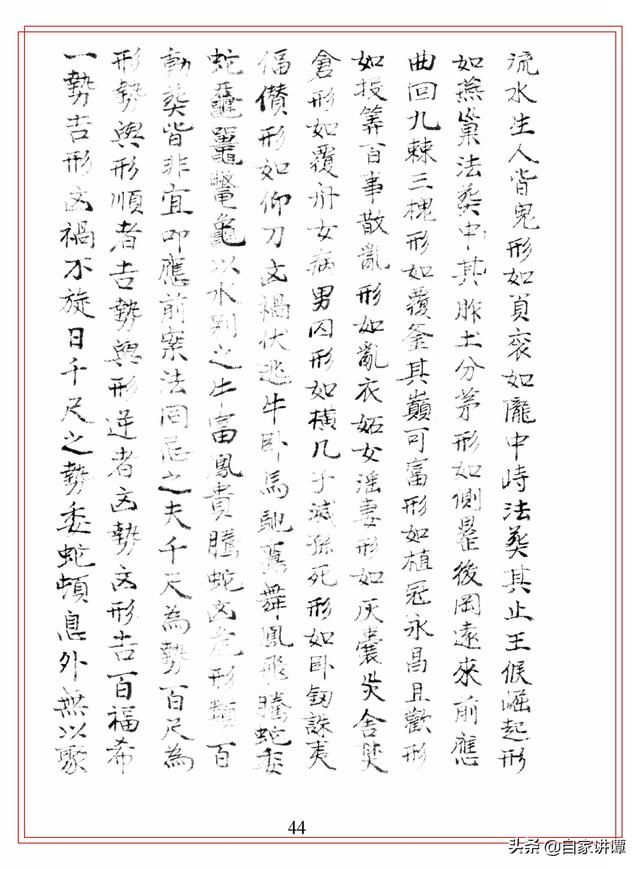 流水生人皆鬼形如負裒如隴中峙法葬其止王候崛起形
如燕巢法葬中其胙土分茅形如側罍後岡遠來前應
曲回九棘三槐形如覆釜其巔可富形如植冠永昌且歡形
如投筭百事散亂形如亂衣妬女淫妻形如灰囊災舍焚
倉形如覆舟女病男囚形如橫几子滅孫死形如卧劒誅夷
偪僣形如仰刀凶禍伏逃牛卧馬馳鸞舞鳳飛騰蛇委
蛇黿鼉鼈龜以水別之牛富鳳貴騰蛇凶危形類百
動葬皆非宜叩應前案法同忌之夫千尺為勢百尺為
形勢與形順者吉勢與形逆者凶勢凶形吉百福希
一勢吉形凶禍不旋日千尺之勢委蛇頓息外無以聚
44
头条 @自家讲谭